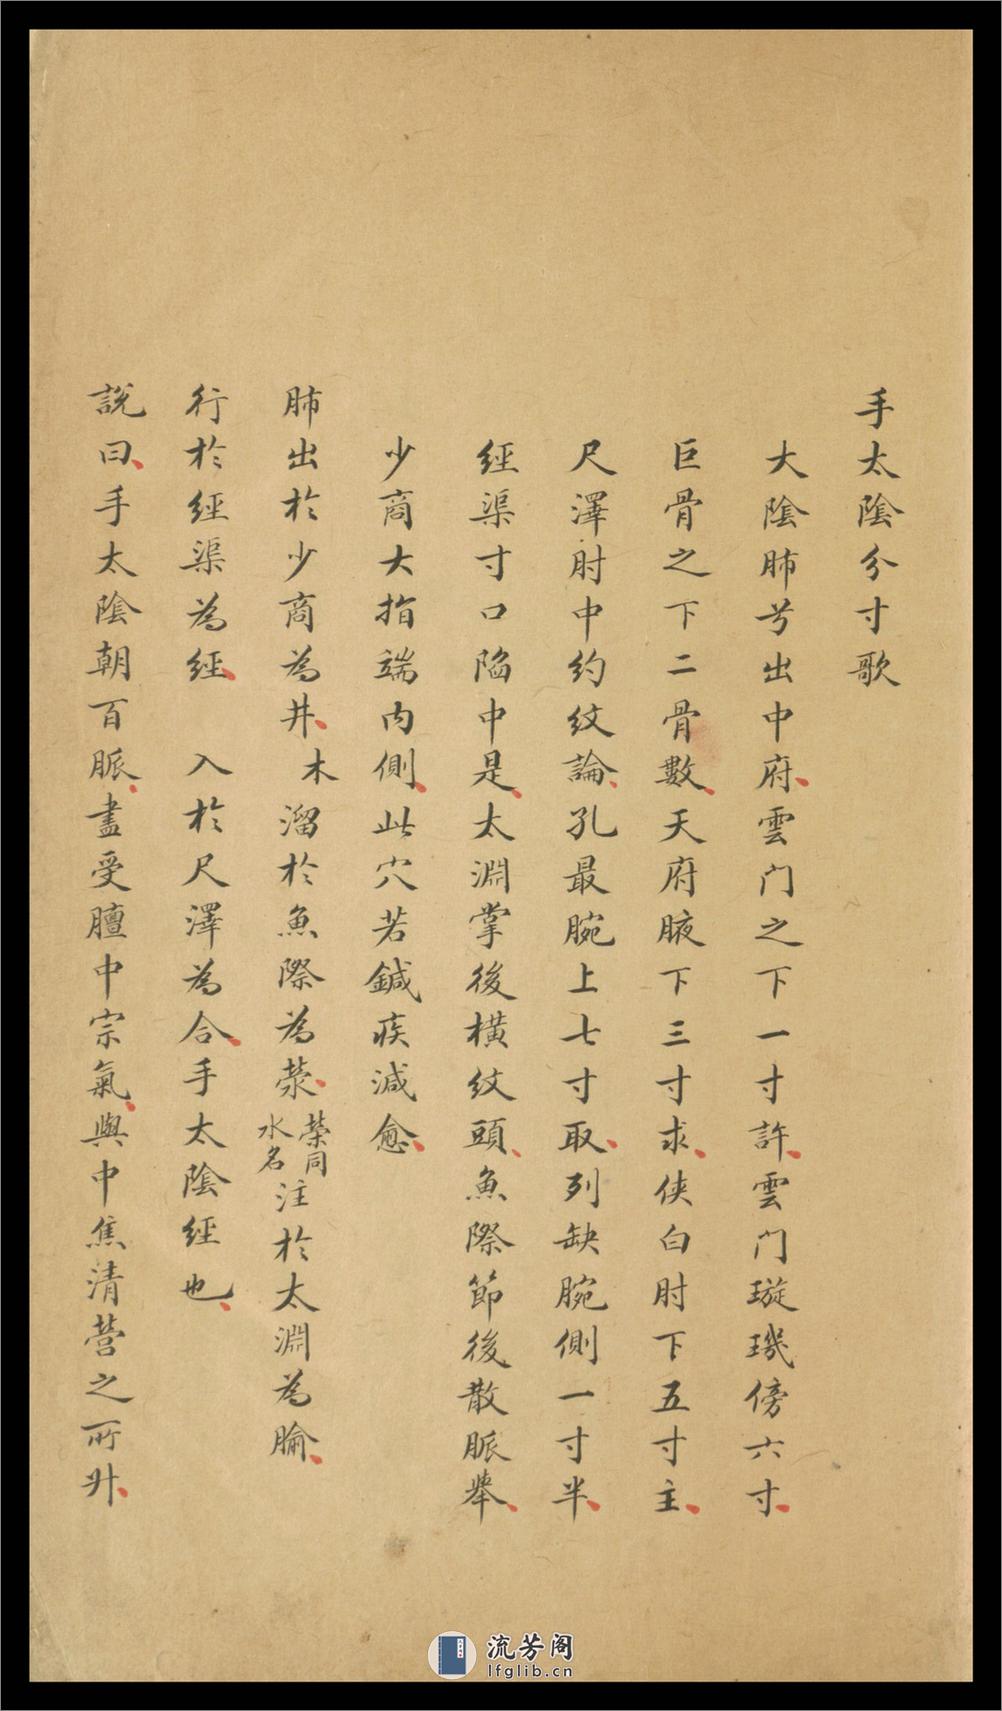 手太陰分寸歌
大陰肺兮出中府雲门之下一寸許雲门璇璣傍六寸
巨骨之下二骨數天府腋下三寸求俠白肘下五寸主
尺澤肘中約纹論孔最腕上七寸取列缺腕側一寸半
經渠寸口陷中是太淵掌後橫纹頭魚際節後散脈舉
少商大指端内側此穴若鍼疾減愈
肺出於少商為井木溜於魚際為滎滎同水名注於太淵為腧
行於經渠為經 入於尺澤為合手太陰經也
說曰手太陰朝百脈盡受膻中宗氣與中焦清營之所升
流芳阁
lfglib.cn